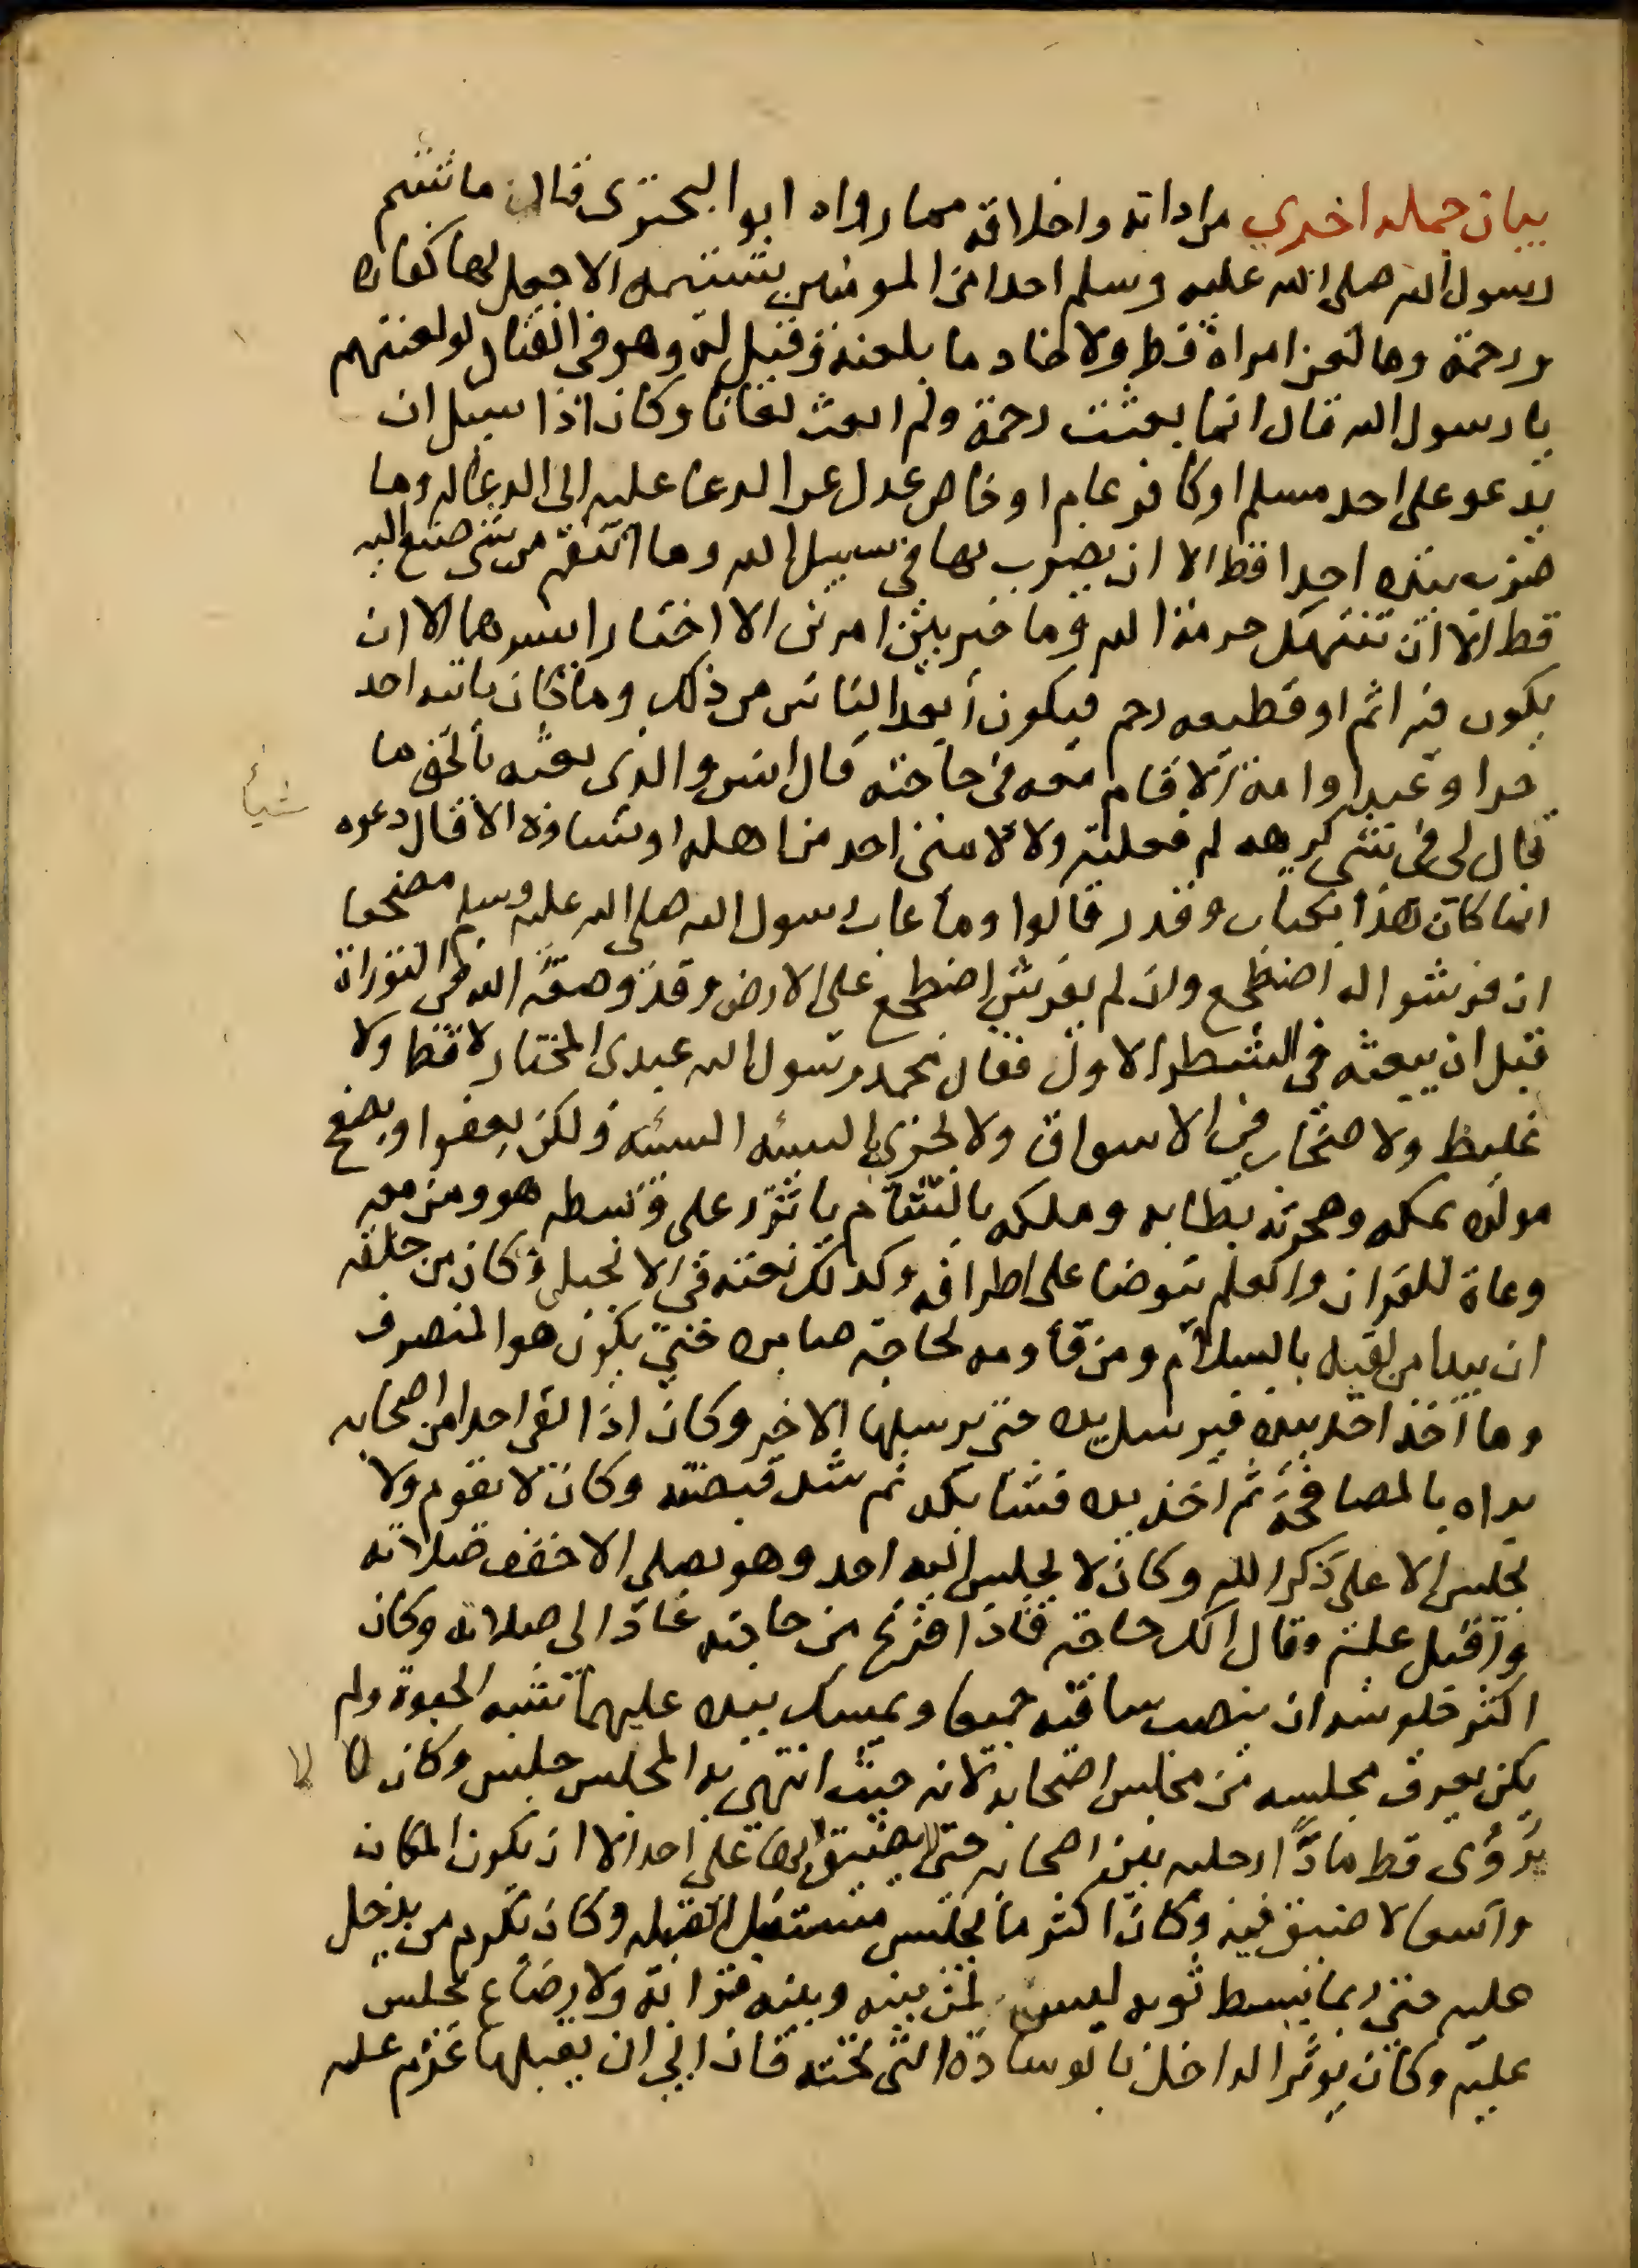 بيان جمله اخري من ادابه واخلاقه مما رواه ابو البحتري قال ما شتم
رسول الله صلى الله عليه وسلم احدا من المومنين بشتيمه الا جعل لها كفاره
ورحمة وما لعن امراة قط ولا خادما بلعنة وقيل له وهو في القتال لو لعنتهم
يا رسول الله قال انما بعثت رحمة ولم ابعث لعانا وكان اذا سيل ان
يدعو على احد مسلم او كافر عام او خاص عدل عن الدعا عليه الى الدعا له وما
ضرب بيده احدا قط الا ان يضرب بها في سبيل الله وما انتقم من شي صنع اليه
قط الا ان تنتهك حرمة الله وما خير بين امرين الا اختار ايسرهما الا ان
يكون فيه اثم او قطيعه رحم فيكون ابعد الناس من ذلك وما كان ياتيه احد
حرا وعبد او امة الا قام معه في حاجته قال انس والذي بعثه بالحق ما
قال لي في شي كرهه لم فعلته ولا لامني احد من اهله او نساوه الا قال دعوه
شيأ
انما كان هذا بكتاب وقدر قالوا وما عاب رسول الله صلى الله عليه وسلم مضجعا
ان فرشوا له اضطجع وان لم يفرش اضطجع على الارض وقد وصفه الله في التوراة
قبل ان يبعثه في السطر الاول فقال محمد رسول الله عبدي المختار لا فظ ولا
غليظ ولا صخاب في الاسواق ولا يجزي بالسيئه السيئه ولكن يعفوا ويصفح
مولده بمكه وهجرته بطابه وملكه بالشام ياتزر على وسطه هو ومن معه
وعاة للقران والعلم يتوضا على اطرافه وكذلك نعته في الانجيل وكان من خلقه
ان يبدا من لقيه بالسلام ومن قاومه لحاجة صابره حتى يكون هو المنصرف
وما اخذ احد بيده فيرسل يده حتى يرسلها الاخر وكان اذا لقي احدا من اصحابه
بداه بالمصافحة ثم اخذ يده فشابكه ثم شد قبضته وكان لا يقوم ولا
يجلس الا على ذكر الله وكان لا يجلس اليه احد وهو يصلي الا خفف صلاته
واقبل عليه وقال الك حاجة فاذا فرغ من حاجته عاد الى صلاته وكان
اكثر جلوسه ان ينصب ساقيه جميعا ويمسك بيده عليهما تشبه الحبوة ولم
يكن يعرف مجلسه من مجلس اصحابه لانه حيث انتهى به المجلس جلس وكان لا
لا
يرؤى قط مادا رجليه بين اصحابه حتى لا يضيق بها على احد الا ان يكون المكان
واسعا لا ضيق فيه وكان اكثر ما يجلس مستقبل القبله وكان يكرم من يدخل
عليه حتى ربما يبسط ثوبه ليس لمن بينه وبينه قرابة ولا رضاع يجلس
عليه وكان يوثر الداخل بالوسادة التي تحته فان ابي ان يقبلها عزم عليه